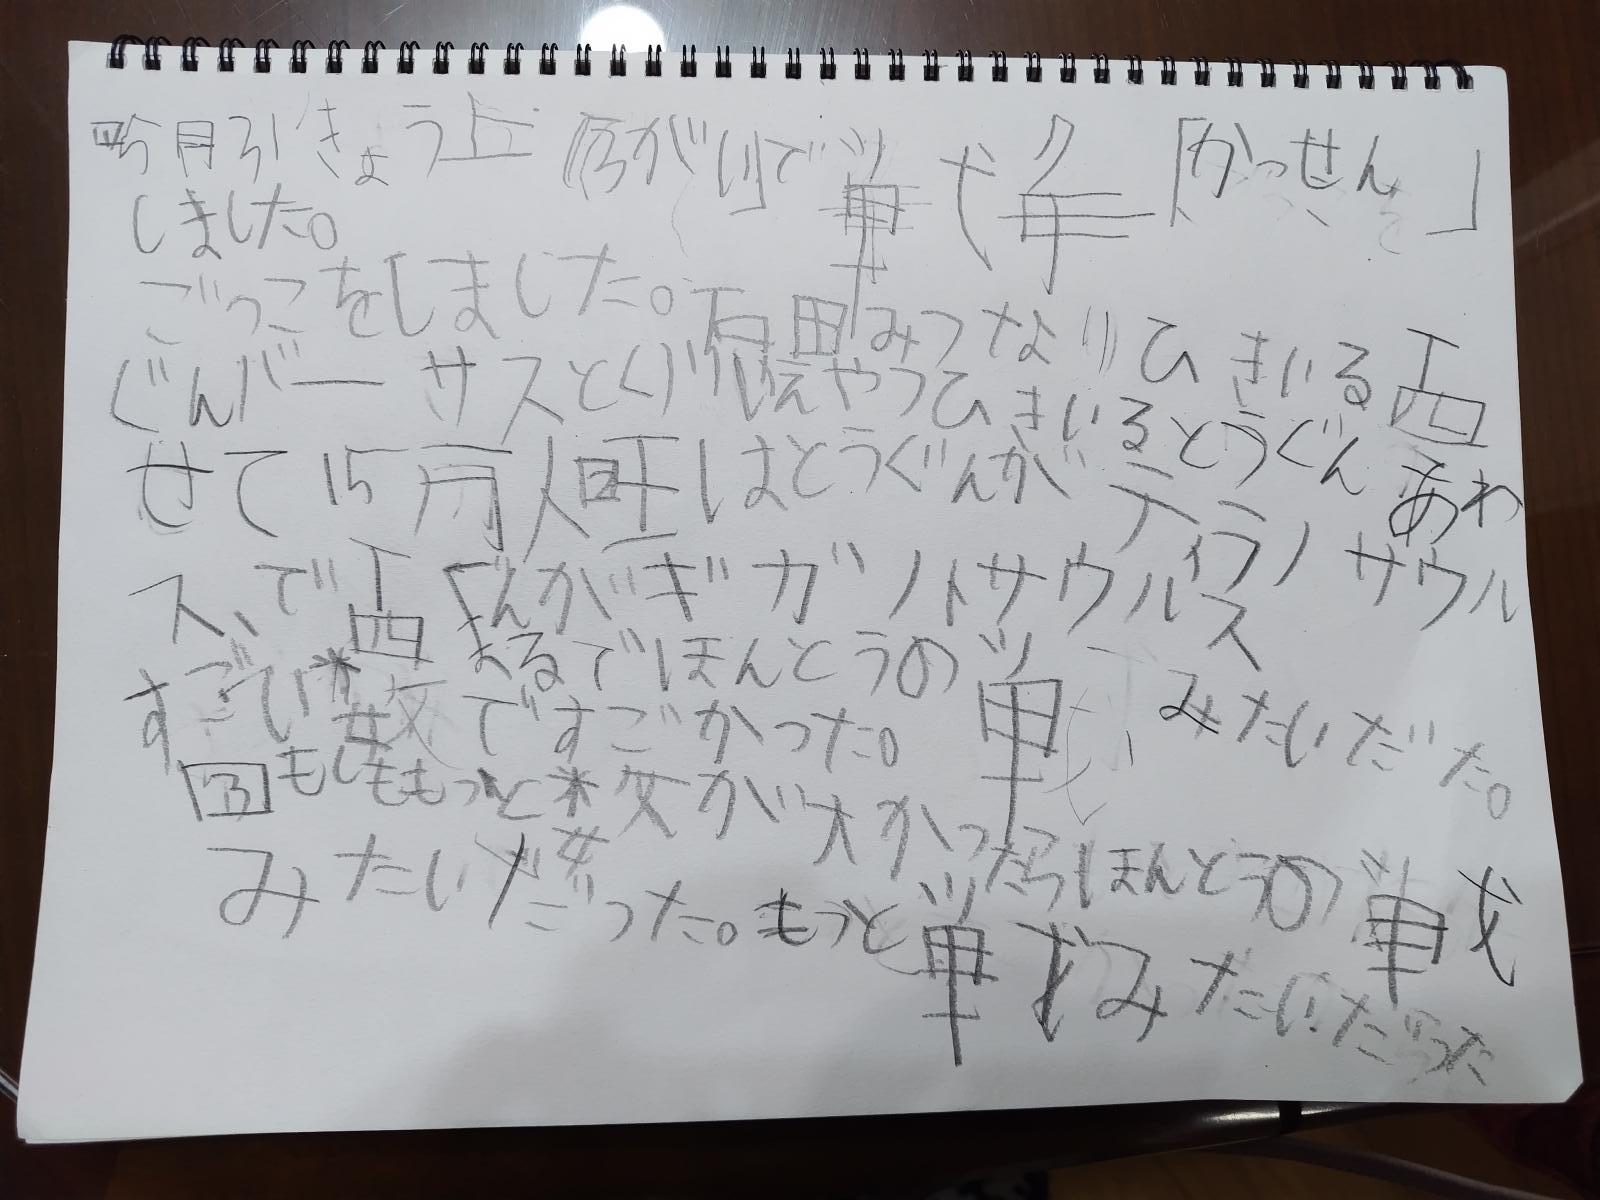 きょう上がりで戦争「かっせん」
しました。
ごっこをしました。石田みつなりひきいる西
ぐんバーサスとくがいえやつひきいるとうぐんあわ
せて15万人
はとうぐんがティラノサウル
ス、で西ぐんがギガノトサウルス
まるでほんとうの戦みたいだった。
すごい数ですごかった。
もしももっと数が大かったらほんとうの戦
みたいだった。もっと戦みたいだった